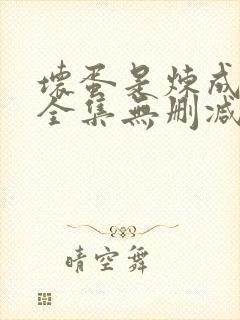 壞蛋是煉成
全集無刪減
晴空舞